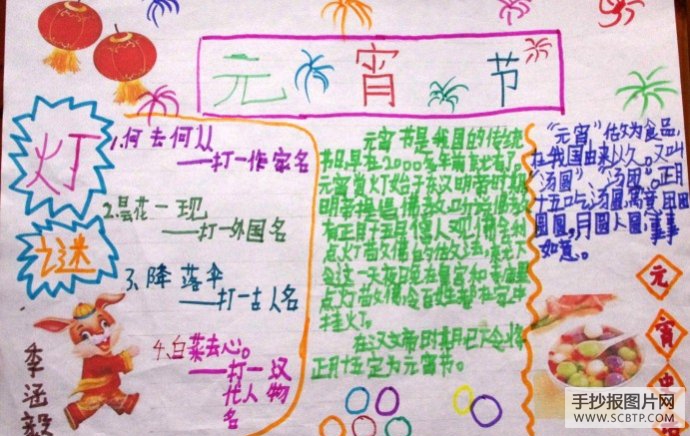 元宵节
灯谜
1.何去何从
——打一作家名
2.昙花一现
——打一外国名
3、降落伞
——打一古人名
4.白菜去心。
——打一汉
代人物
名
李涵毅
元宵节是我国的传统
节日,早在2000多年前就有了,
元宵赏灯始于东汉明帝时期
明帝提倡佛教,
有正月十五日僧人观
点灯
令这一天夜晚在皇宫和寺庙里
点灯敬佛,令百姓都在
挂灯。
在汉文帝时期已下令将
正月十五定为元宵节。
"元宵"作为食品,
在我国由来久。又叫
"汤圆"、汤团"。正月
十五吃汤圆,寓意团团
圆圆,月圆人圆,事事
如意。
元宵
手抄报图片网
WWW.SCBTP.COM